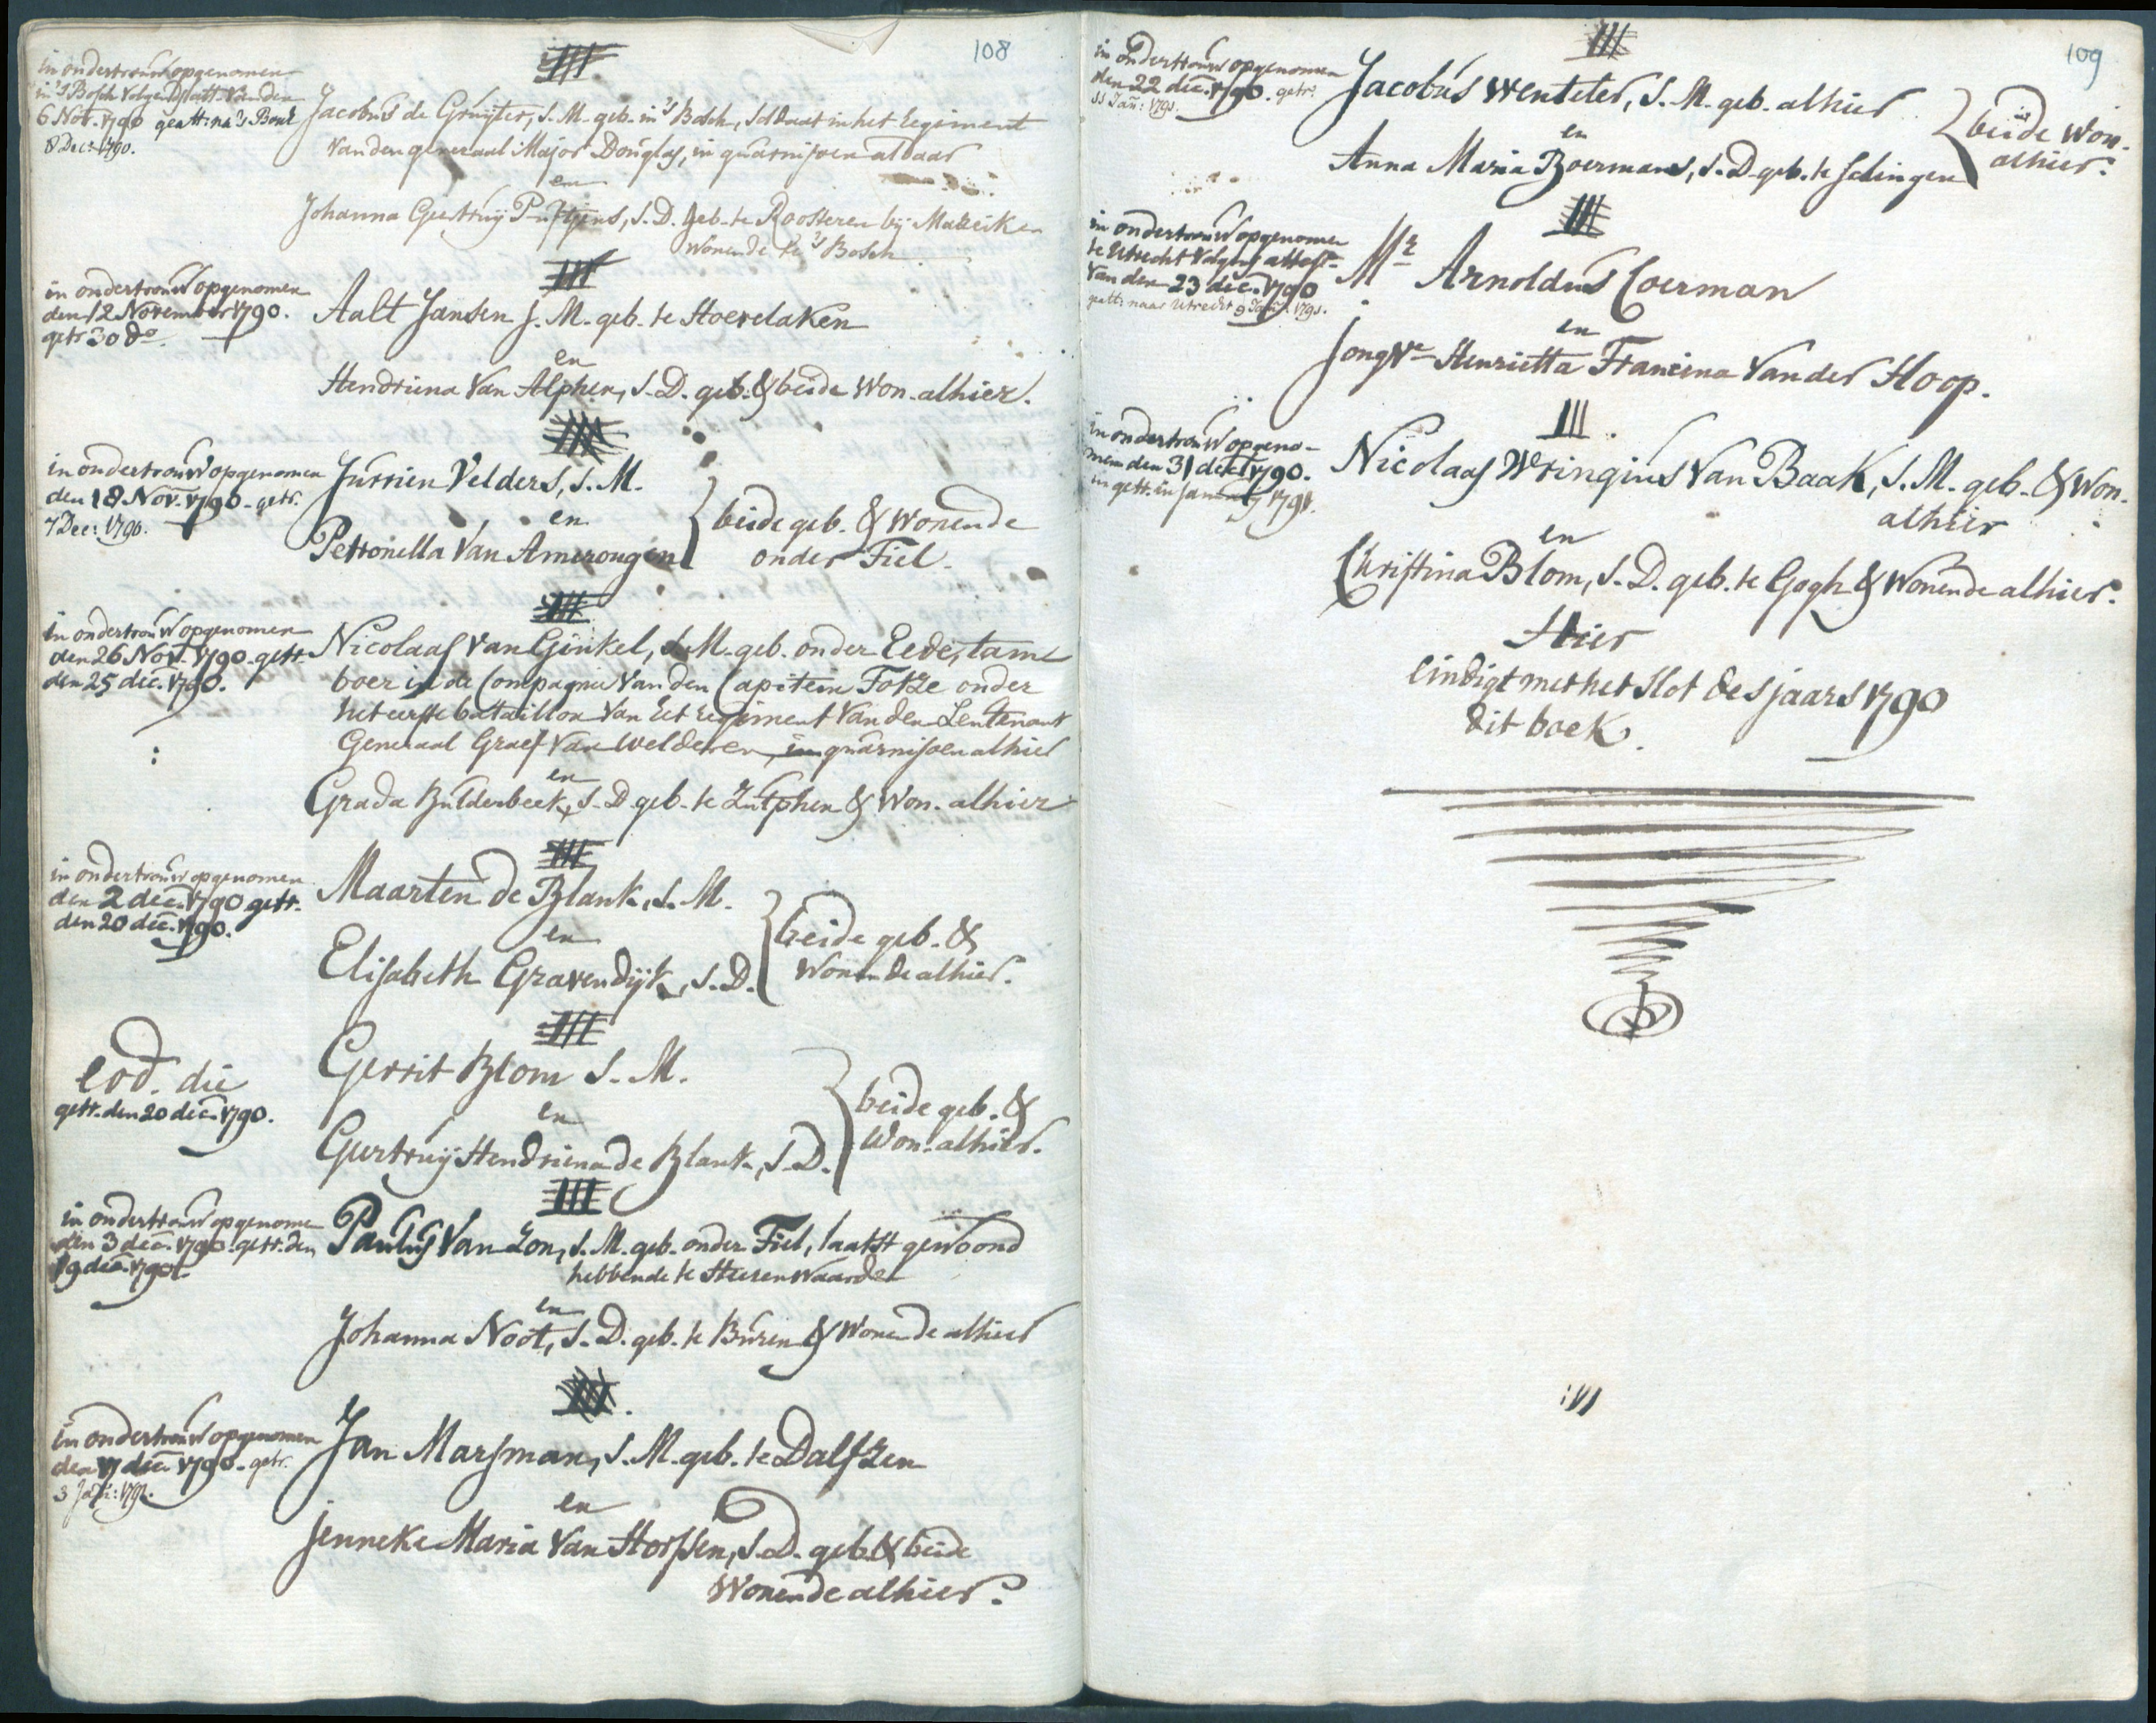 108
in ondertrouw opgenomen
in 's Bosch volgens att: van den
6 Nov. 1790 geatt: na 's Bosch
8 Dec: 1790.
Jacobus de Gruyter, J. M. geb. in 's Bosch, Soldaat in het Regiment
van den generaal Major Douglas, in guarnisoen aldaar
en
Johanna Geertruy, J. D. geb. te Roosteren bij Maseik en
wonende te 's Bosch
in ondertrouw opgenomen
den 12 November 1790.
getr 30 do.
Aalt Jansen J. M. geb. te Hoevelaken
en
Hendriena van Alphen, J. D. geb. & beide won. alhier.
in ondertrouw opgenomen
den 18. Nov. 1790. getr.
7 Dec: 1790.
Jurrien Velders, J. M.
en
Petronella van Amerongen
beide geb. & wonende
onder Tiel.
in ondertrouw opgenomen
den 26 Nov. 1790. getr.
den 25 dec. 1790.
Nicolaas van Ginkel, J. M. geb. onder Eede, tam-
boer in de Compagnie van den Capitein Fotze onder
het eerste bataillon van het Regiment van den Leutenant
Generaal Graef van Welderen, in guarnisoen alhier
en
Grada Bulderbeek, J. D. geb. te Zutphen & won. alhier
in ondertrouw opgenomen
den 2 dec. 1790 getr.
den 20 dec. 1790.
Maarten de Blank, J. M.
en
Elisabeth Gravendijk, J. D.
beide geb. &
wonende alhier.
eod. die
getr. den 20 dec. 1790.
Gerrit Blom J. M.
en
Geertruij Hendriena de Blank, J. D.
beide geb. &
won. alhier.
in ondertrouw opgenomen
den 3 dec. 1790. getr. den
19 dec. 1790.
Paulus van Zon, J. M. geb. onder Tiel, laatst gewoond
hebbende te Heerenwaarden
en
Johanna Noot, J. D. geb. te Buren & wonende alhier
in ondertrouw opgenomen
den 17 dec. 1790. getr.
3 Jan: 1791.
Jan Marsman, J. M. geb. te Dalfzen
en
Jenneke Maria van Horssen, J. D. geb. & beide
wonende alhier.
109
in ondertrouw opgenomen
den 22 dec. 1790. getr.
11 Jan: 1791.
Jacobus Wenteler, J. M. geb. alhier
en
Anna Maria Boermans, J. D. geb. te
beide won.
alhier.
in ondertrouw opgenomen
te Utrecht volgens attest.
van den 23 dec. 1790
geatt: naar Utrecht 9 Jan: 1791.
Mr. Arnoldus Coerman
en
Jongvr. Henrietta Francina van der Hoop.
in ondertrouw opgeno-
men den 31 dec. 1790.
en getr. in January 1791.
Nicolaas Wringius van Baak, J. M. geb. & won.
alhier
en
Christina Blom, J. D. geb. te Gogh & wonende alhier.
Hier
eindigt met het slot des jaars 1790
dit boek.